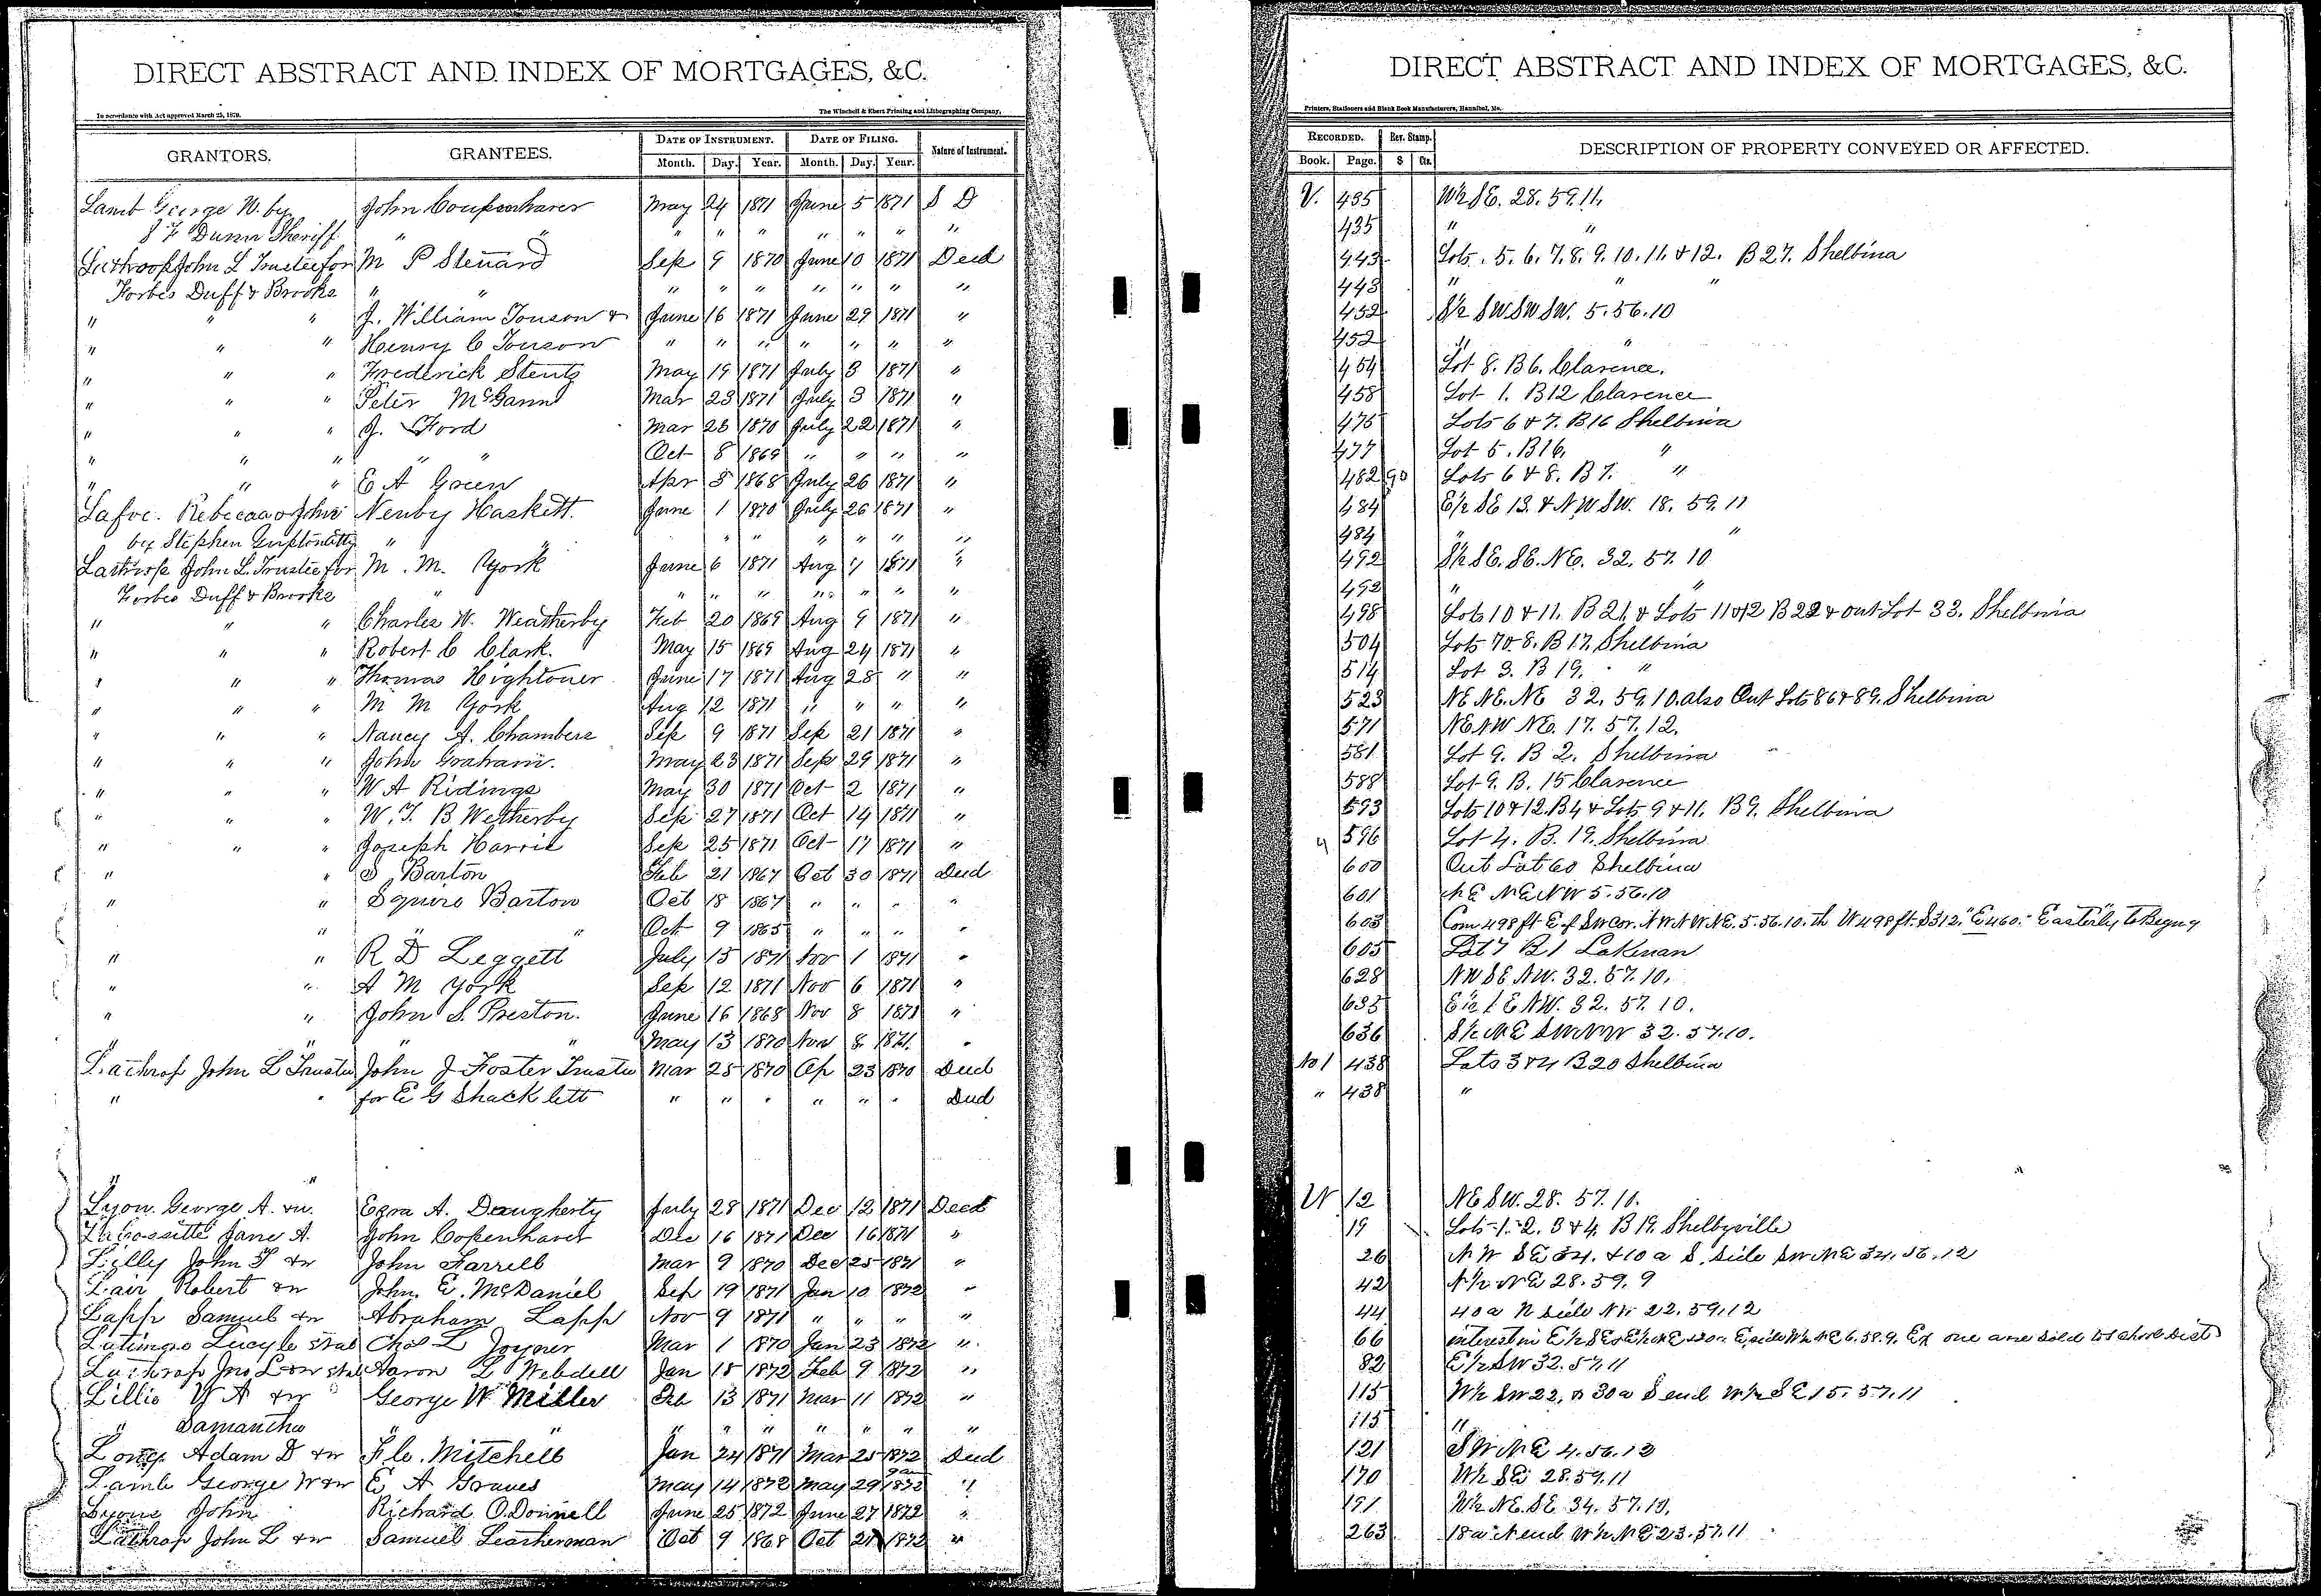 DIRECT ABSTRACT AND INDEX OF MORTGAGES, &C.
In accordance with Act approved March 25, 1870. The Winchell & Ebert Printing and Lithographing Company,
GRANTORS. GRANTEES. DATE OF INSTRUMENT. DATE OF FILING. Nature of Instrument.
Month. Day. Year. Month. Day. Year.
Lamb George W. by John Coupenhaver May 24 1871 June 5 1871 S D
S F Dunn Sheriff " " " " " " " " "
Lathrop John L Trustee for M P Stenard Sep 9 1870 June 10 1871 Deed
Forbes Duff & Brooks " " " " " " " " "
" " " J. William Touson & June 16 1871 June 29 1871 "
" " " Henry C Touson " " " " " " "
" " " Frederick Stentz May 19 1871 July 3 1871 "
" " " Peter McGann Mar 23 1871 July 3 1871 "
" " " J. Ford Mar 26 1870 July 22 1871 "
" " " " " Oct 8 1869 " " " "
" " " E A Green Apr 8 1868 July 26 1871 "
Rebecca John Newby Haskett. June 1 1870 July 26 1871 "
by Stephen " " " " " " " "
Lathrop John L. Trustee for M. M. York June 6 1871 Aug 4 1871 "
Forbes Duff & Brooks " " " " " " " "
" " " Charles W. Weatherby Feb 20 1869 Aug 9 1871 "
" " " Robert C Clark. May 15 1869 Aug 24 1871 "
" " " Thomas Hightower June 17 1871 Aug 28 " "
" " " M M York Aug 12 1871 " " " "
" " " Nancy A. Chambers Sep 9 1871 Sep 21 1871 "
" " " John Graham. May 23 1871 Sep 29 1871 "
" " " W A Ridings May 30 1871 Oct 2 1871 "
" " " W. T. B Wetherby Sep 27 1871 Oct 14 1871 "
" " " Joseph Harris Sep 25 1871 Oct 17 1871 "
" " S Barton Feb 21 1867 Oct 30 1871 Deed
" " Squire Barton Oct 18 1867 " " " "
" " " Oct 9 1865 " " " "
" " R D Leggett July 15 1871 Nov 1 1871 "
" " A M York Sep 12 1871 Nov 6 1871 "
" " John S. Preston. June 16 1868 Nov 8 1871 "
" " " May 13 1870 Nov 8 1871. "
Lathrop John L Trustee John J Foster Trustee Mar 25 1870 Ap 23 1870 Deed
" " for E G Shacklett " " " " " " Deed
" "
Lyon George A. & w. Ezra A. Daugherty July 28 1871 Dec 12 1871 Deed
Jane A. John Copenhaver Dec 16 1871 Dec 16 1871 "
Lielly John T & w John Farrell Mar 9 1870 Dec 25 1871 "
Lair Robert & w John. E. McDaniel Sep 19 1871 Jan 10 1872 "
Lapp Samuel & w Abraham Lapp Nov 9 1871 " " " "
Lucy Chas L Joyner Mar 1 1870 Jan 23 1872 "
Lathrop Jno L & w et al Aaron L Webdell Jan 18 1872 Feb 9 1872 "
Lillie W A & w George W Miller Feb 13 1871 Mar 11 1872 "
" Samantha " " " " " " " " "
Long Adam D & w Mitchell Jan 24 1871 Mar 25 1872 Deed
Lamb George W & w E A Graves May 14 1872 May 29 1872 "
Lyons John Richard O.Donnell June 25 1872 June 27 1872 "
Lathrop John L & w Samuel Leatherman Oct 9 1868 Oct 21 1872 "
DIRECT ABSTRACT AND INDEX OF MORTGAGES, &C.
Printers, Stationers and Blank Book Manufacturers, Hannibal, Mo.
RECORDED. Rev. Stamp. DESCRIPTION OF PROPERTY CONVEYED OR AFFECTED.
Book. Page. $ Cts.
V. 435 W½ SE. 28. 59. 11.
435 " "
443 Lots. 5. 6. 7. 8. 9. 10. 11. & 12. B 27. Shelbina
443 " " "
452 S½ SW SW SW. 5. 56. 10
452 " "
454 Lot 8. B 6. Clarence.
458 Lot 1. B12 Clarence
476 Lots 6 & 7. B16 Shelbina
477 Lot 5. B16. "
482 90 Lots 6 & 8. B 7. "
484 E½ SE 13. & N.W SW. 18. 59. 11
484 " "
492 S½ SE. SE. NE. 32. 57. 10
492 " "
498 Lots 10 & 11. B 21, & Lots 11 & 12 B 22 & out Lot 33. Shelbina
504 Lots 7 & 8. B 17. Shelbina
514 Lot 3. B 19. "
523 NE NE. NE 32. 59. 10. also Out Lots 86 & 89. Shelbina
571 NE NW NE. 17. 57. 12.
581 Lot 9. B 2. Shelbina
588 Lot 9. B. 15 Clarence
593 Lots 10 & 12. B4 & Lots 9 & 11. B 9. Shelbina
596 Lot 4. B. 19. Shelbina
600 Out Lot 60 Shelbina
601 NE NE NW 5. 56. 10
603 Com 498 ft E of SW cor. NW NW NE. 5. 56. 10. th W 498 ft. S 312." E 460." Easterly to Begng
605 Lot 7 B. 1 Lakenan
628 NW SE NW. 32. 57. 10.
635 E½ SE NW. 32. 57. 10.
636 S½ NE SW NW 32. 57. 10.
No 1 438 Lots 3 & 4 B 20 Shelbina
" 438 "
W 12 NE SW. 28. 57. 11.
19 Lots 1. 2. 3 & 4. B 19. Shelbyville
26 N W SE 34. & 10 a S. side SW NE 34. 56. 12
42 N½ NE 28. 59. 9
44 40 a N side NW 22. 59. 12
66 interest in E½ SE & E½ NE & 20 a E side W½ NE 6. 58. 9. Ex one acre sold to school Dist
82 E½ SW 32. 57. 11
115 W½ SW 22. & 30 a S end W½ SE 15. 57. 11
115 "
121 SW NE 4. 56. 12
170 W½ SE 28. 59. 11
191 W½ NE. SE 34. 57. 10.
263 18 a N end W½ NE 23. 57. 11